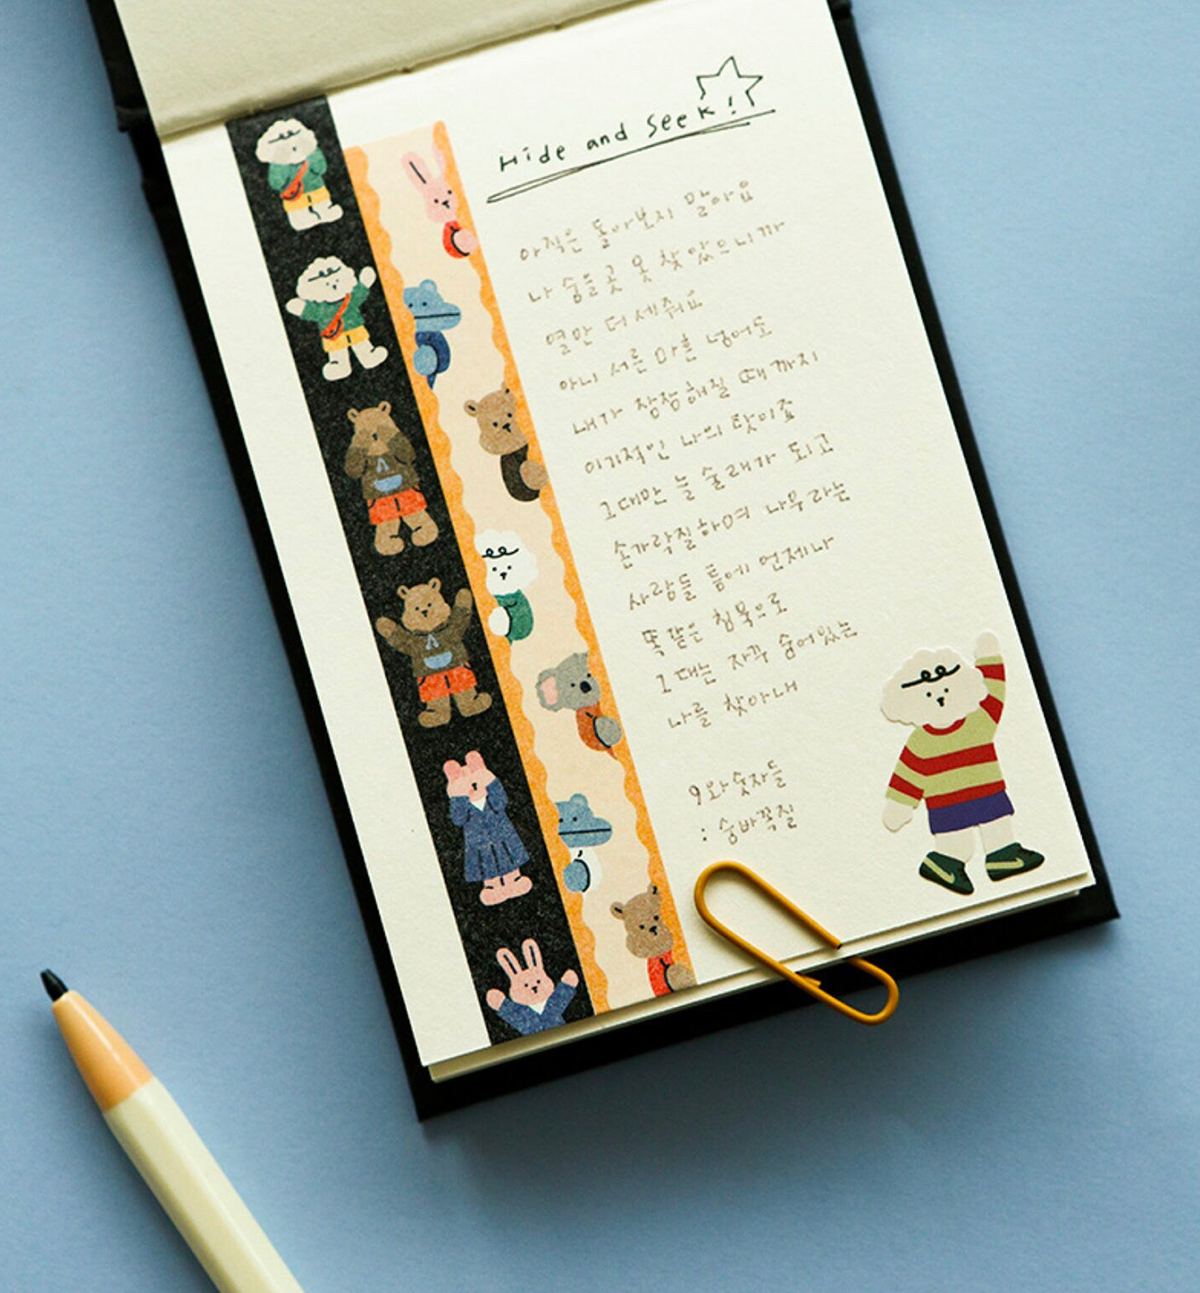 Hide and Seek!
아직은 돌아보지 말아요
나 숨을곳 못 찾았으니까
열만 더 세줘요
아니 서른 마흔 넘어도
내가 잠잠해질 때까지
이기적인 나의 탓이죠
그대만 늘 술래가 되고
손가락질하며 나무라는
사람들 틈에 언제나
똑같은 침묵으로
그대는 자꾸 숨어있는
나를 찾아내
9와 숫자들
: 숨바꼭질